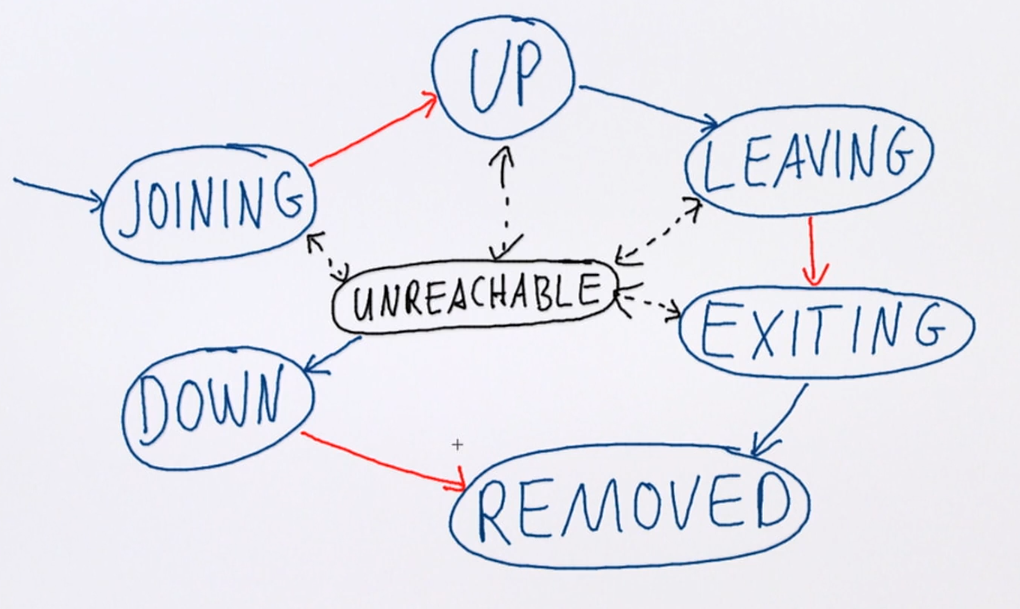 UP
LEAVING
JOINING
UNREACHABLE
EXITING
DOWN
REMOVED